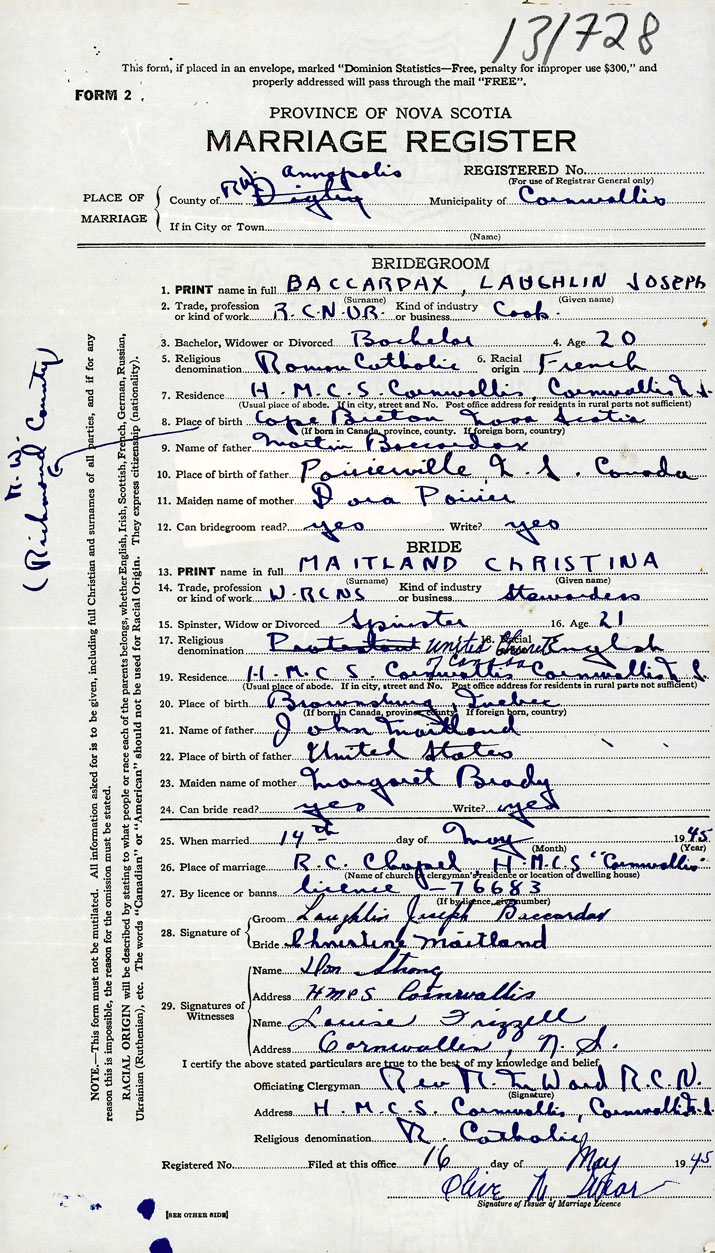 131728
This form, if placed in an envelope, marked "Dominion Statistics—Free, penalty for improper use $300," and
properly addressed will pass through the mail "FREE".
FORM 2
PROVINCE OF NOVA SCOTIA
MARRIAGE REGISTER
PLACE OF MARRIAGE
R.W. Annapolis
REGISTERED No.
(For use of Registrar General only)
County of Digby Municipality of Cornwallis
If in City or Town
(Name)
BRIDEGROOM
1. PRINT name in full BACCARDAX, LAUGHLIN JOSEPH
(Surname) (Given name)
2. Trade, profession or kind of work R.C.N.V.R. Kind of industry or business Cook.
3. Bachelor, Widower or Divorced Bachelor 4. Age 20
5. Religious denomination Roman Catholic 6. Racial origin French
7. Residence H.M.C.S. Cornwallis, Cornwallis N.S.
(Usual place of abode. If in city, street and No. Post office address for residents in rural parts not sufficient)
8. Place of birth Cape Breton Nova Scotia
(If born in Canada, province, county. If foreign born, country)
9. Name of father Martin Baccardax
10. Place of birth of father Poirierville, N.S. Canada
11. Maiden name of mother Dora Poirier
12. Can bridegroom read? yes Write? yes
BRIDE
13. PRINT name in full MAITLAND CHRISTINA
(Surname) (Given name)
14. Trade, profession or kind of work W.RCNS Kind of industry or business Stewardess
15. Spinster, Widow or Divorced Spinster 16. Age 21
17. Religious denomination Protestant United Church of Canada 18. Racial English
19. Residence H.M.C.S. Cornwallis Cornwallis N.S.
(Usual place of abode. If in city, street and No. Post office address for residents in rural parts not sufficient)
20. Place of birth Brownsburg, Quebec
(If born in Canada, province, county. If foreign born, country)
21. Name of father John Maitland
22. Place of birth of father United States
23. Maiden name of mother Margaret Brady
24. Can bride read? yes Write? yes
25. When married 14th day of May 1945
(Month) (Year)
26. Place of marriage R.C. Chapel H.M.C.S "Cornwallis"
(Name of church, clergyman's residence or location of dwelling house)
27. By licence or banns licence – 76683
(If by licence, give number)
28. Signature of
Groom Laughlin Joseph Baccardax
Bride Christine Maitland
29. Signatures of Witnesses
Name Don Strong
Address HMCS Cornwallis
Name Louise Frizzell
Address Cornwallis, N.S.
I certify the above stated particulars are true to the best of my knowledge and belief.
Officiating Clergyman Rev. Ward R.C.N.
(Signature)
Address H.M.C.S. Cornwallis, Cornwallis N.S.
Religious denomination R. Catholic
Registered No. Filed at this office 16 day of May 1945
Olive
Signature of Issuer of Marriage Licence
[SEE OTHER SIDE]
(Richmond County)
R.W.
NOTE.—This form must not be mutilated. All information asked for is to be given, including full Christian and surnames of all parties, and if for any
reason this is impossible, the reason for the omission must be stated.
RACIAL ORIGIN will be described by stating to what people or race each of the parents belongs, whether English, Irish, Scottish, French, German, Russian,
Ukrainian (Ruthenian), etc. The words "Canadian" or "American" should not be used for Racial Origin. They express citizenship (nationality).